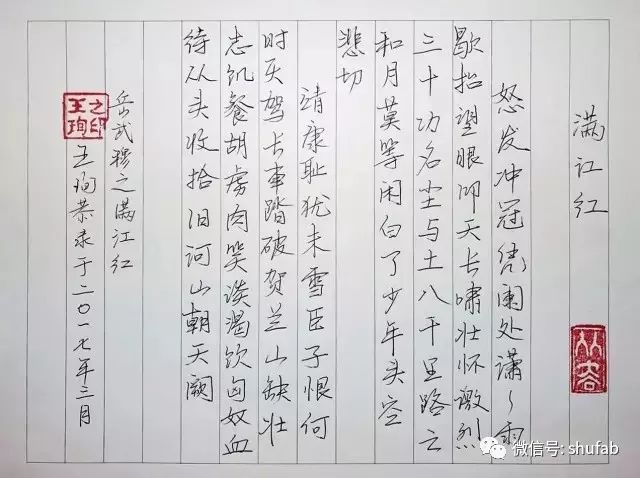 满江红
怒发冲冠凭阑处潇〻雨
歇抬望眼仰天长啸壮怀激烈
三十功名尘与土八千里路云
和月莫等闲白了少年头空
悲切
靖康耻犹未雪臣子恨何
时灭驾长车踏破贺兰山缺壮
志饥餐胡虏肉笑谈渴饮匈奴血
待从头收拾旧河山朝天阙
岳武穆之满江红
王珣恭录于二〇一七年三月
王珣之印
微信号: shufab